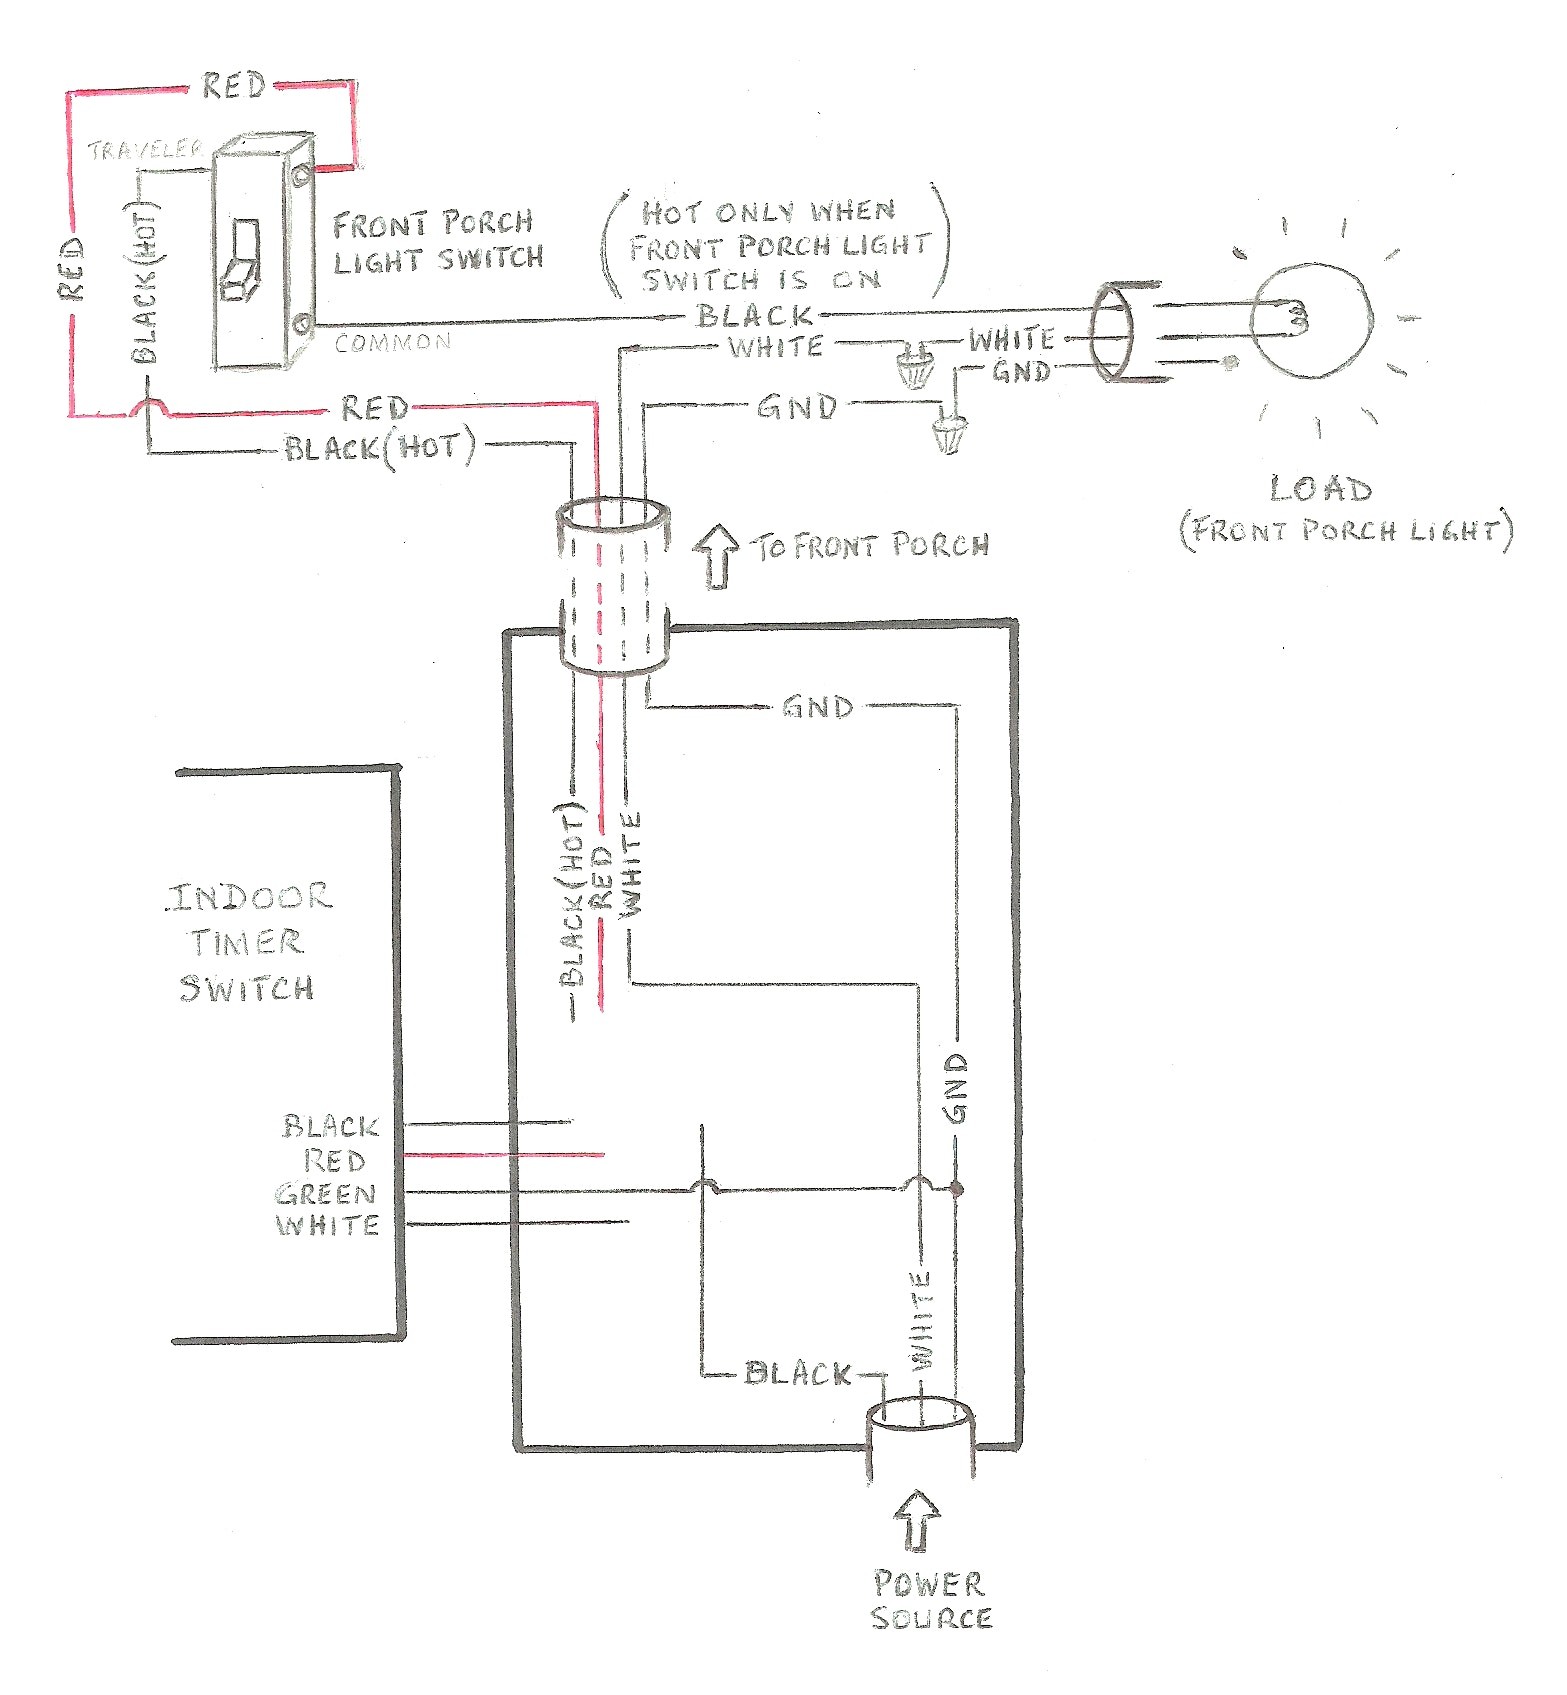 RED
TRAVELER
RED
BLACK(HOT)
FRONT PORCH
LIGHT SWITCH
(HOT ONLY WHEN
FRONT PORCH LIGHT
SWITCH IS ON)
BLACK
COMMON
WHITE
WHITE
GND
RED
GND
BLACK(HOT)
LOAD
(FRONT PORCH LIGHT)
TO FRONT PORCH
GND
BLACK(HOT)
RED
WHITE
INDOOR
TIMER
SWITCH
GND
BLACK
RED
GREEN
WHITE
WHITE
BLACK
POWER
SOURCE